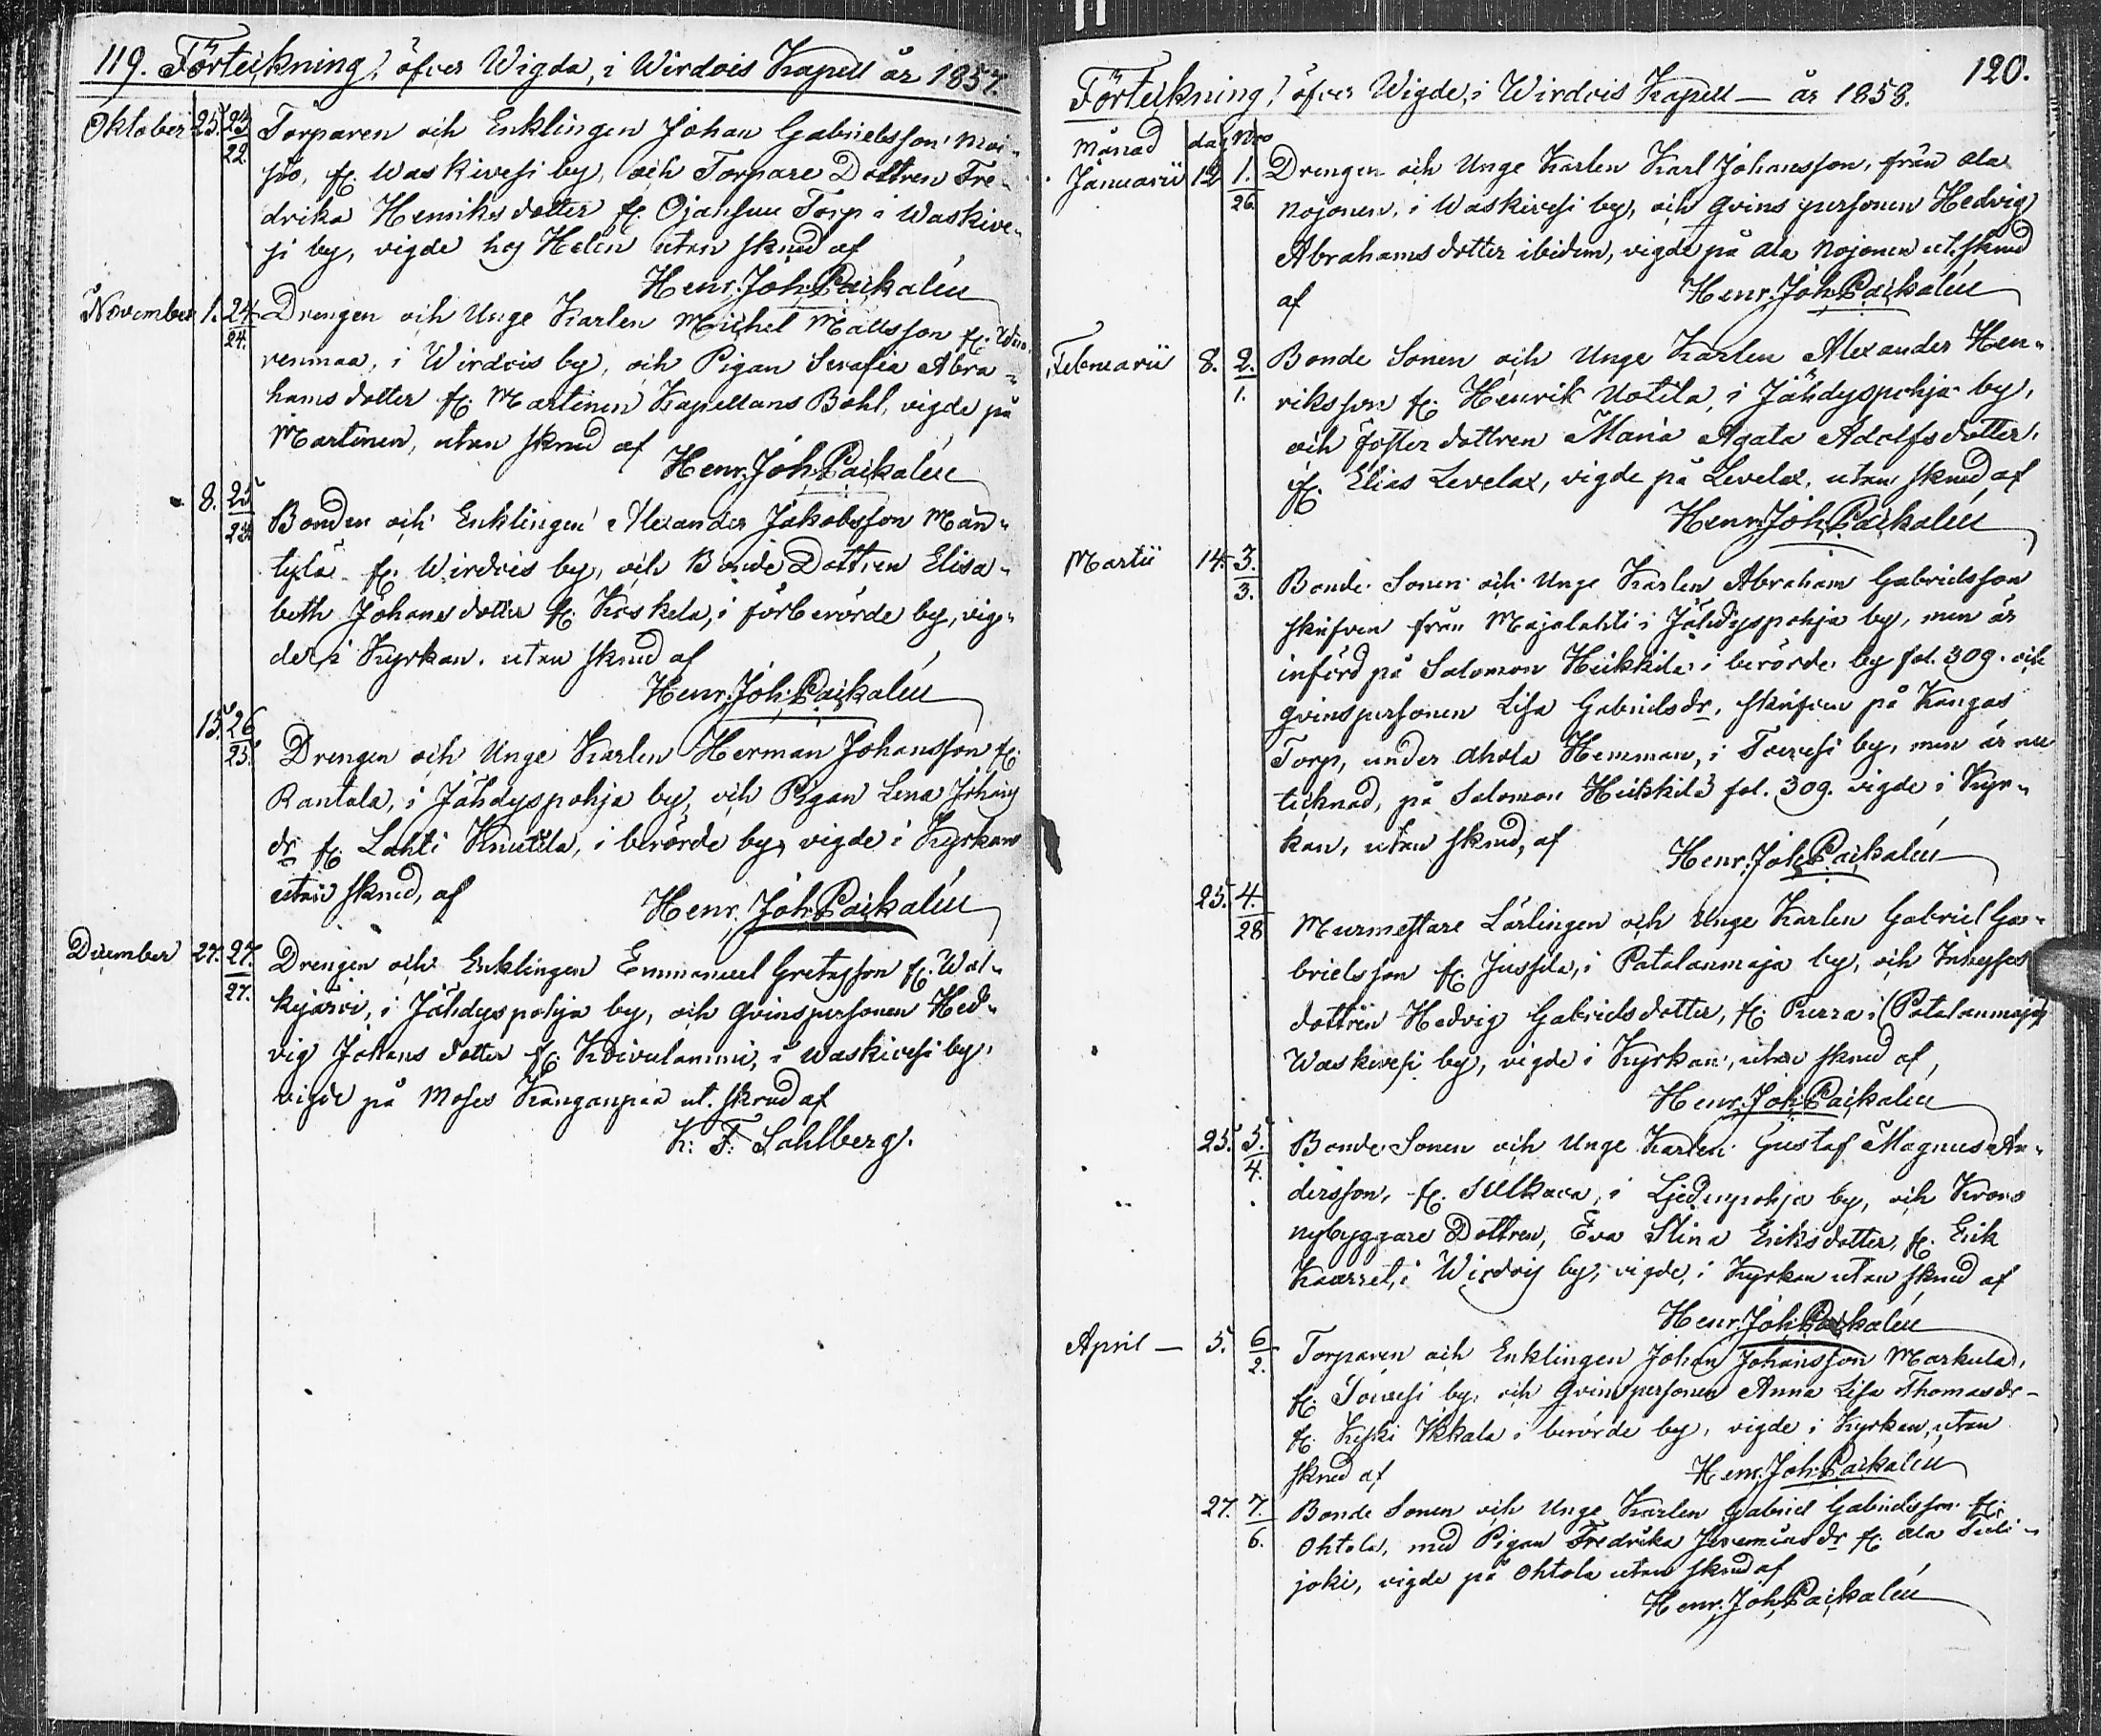 119. Förteckning, öfver Wigda, i Wirdois Kapell år 1857.
Oktober 25. 23/22. Torparen och Enklingen Johan Gabrielsson Moi-
sio, fr. Waskivesi by, och Torpare Dottren Fre-
drika Henriksdotter fr. Ojansuu Torp i Waskive-
si by, vigde hos Helen utan skrud af
Henr. Joh. Paikalén
November 1. 24/24. Drengen och Unge Karlen Michel Mattsson fr.
renmaa, i Wirdois by, och Pigan Serafia Abra-
hamsdotter fr. Martinen Kapellans Bohl, vigde på
Martinen, utan skrud af
Henr. Joh. Paikalén
8. 25/23. Bonden och Enklingen Alexander Jakobsson Män-
tylä fr. Wirdois by, och Bonde Dottren Elisa-
beth Johansdotter fr. Koskela, i förberörde by, vig-
de, i Kyrkan. utan skrud af
Henr. Joh. Paikalén
15. 26/25. Drengen och Unge Karlen Herman Johansson fr.
Rantala, i Jähdyspohja by, och Pigan Lena Johans
dr fr. Lahti Knutila, i berörde by, vigde i Kyrkan
utan skrud, af
Henr. Joh. Paikalén
December 27. 27/27. Drengen och Enklingen Emmanuel Gretasson fr. Wal-
kjärvi, i Jähdyspohja by, och Qvinspersonen Hed-
vig Johansdotter fr. Koivulammi, i Waskivesi by,
vigde på Moses Kanganpää ut. skrud af
K: F: Sahlberg.
120.
Förteckning, öfver Wigde, i Wirdois Kapell — år 1858.
Månad dag Nro
Januarii 12 1./26. Drengen och Unge Karlen Karl Johansson, från Ala
Nojonen, i Waskivesi by, och Qvinspersonen Hedvig
Abrahamsdotter ibidem, vigde på Ala Nojonen ut. skrud
af
Henr. Joh. Paikalén
Februarii 8. 2./1. Bonde Sonen och Unge Karlen Alexander Hen-
riksson fr. Henrik Uotila, i Jähdyspohja by,
och Fosterdottren Maria Agata Adolfsdotter,
fr. Elias Levelax, vigde på Levelax, utan skrud af
Henr. Joh. Paikalén
Martii 14. 3./3. Bonde Sonen och Unge Karlen Abraham Gabrielsson
skrifven från Majalahti i Jähdyspohja by, men är
införd på Salomon Heikkilä i berörde by fol. 309. och
Qvinspersonen Lisa Gabrielsdr, skrifven på Kangas
Torp, under Ahola Hemman, i Toivesi by, men är nu
tecknad, på Salomon Heikkilä fol. 309. vigde i Kyr-
kan, utan skrud, af
Henr. Joh. Paikalén
25. 4./28 Murmestare Lärlingen och Unge Karlen Gabriel Ga-
brielsson fr. Jussila, i Patalanmaja by, och Inhyses
dottren Hedvig Gabrielsdotter, fr. Purra i (Patalanmaja)
Waskivesi by, vigde i Kyrkan, utan skrud af,
Henr. Joh. Paikalén
25. 5./4. Bonde Sonen och Unge Karlen Gustaf Magnus An-
dersson, fr. Silkava, i Liedenpohja by, och Krono
nybyggare Dottren, Eva Stina Eriksdotter, fr. Erik
i Wirdois by, vigde, i Kyrkan utan skrud af
Henr. Joh. Paikalén
April — 5. 6/2. Torparen och Enklingen Johan Johansson Markula,
fr. Toivesi by, och Qvinspersonen Anna Lisa Thomasdr-
fr. Keski Ikkala i berörde by, vigde i Kyrkan, utan
skrud af
Henr. Joh. Paikalén
27. 7./6. Bonde Sonen och Unge Karlen Gabriel Gabrielsson fr.
Ohtola, med Pigan Fredrika Jeremiasdr fr. Ala
joki, vigde på Ohtola utan skrud af
Henr. Joh. Paikalén